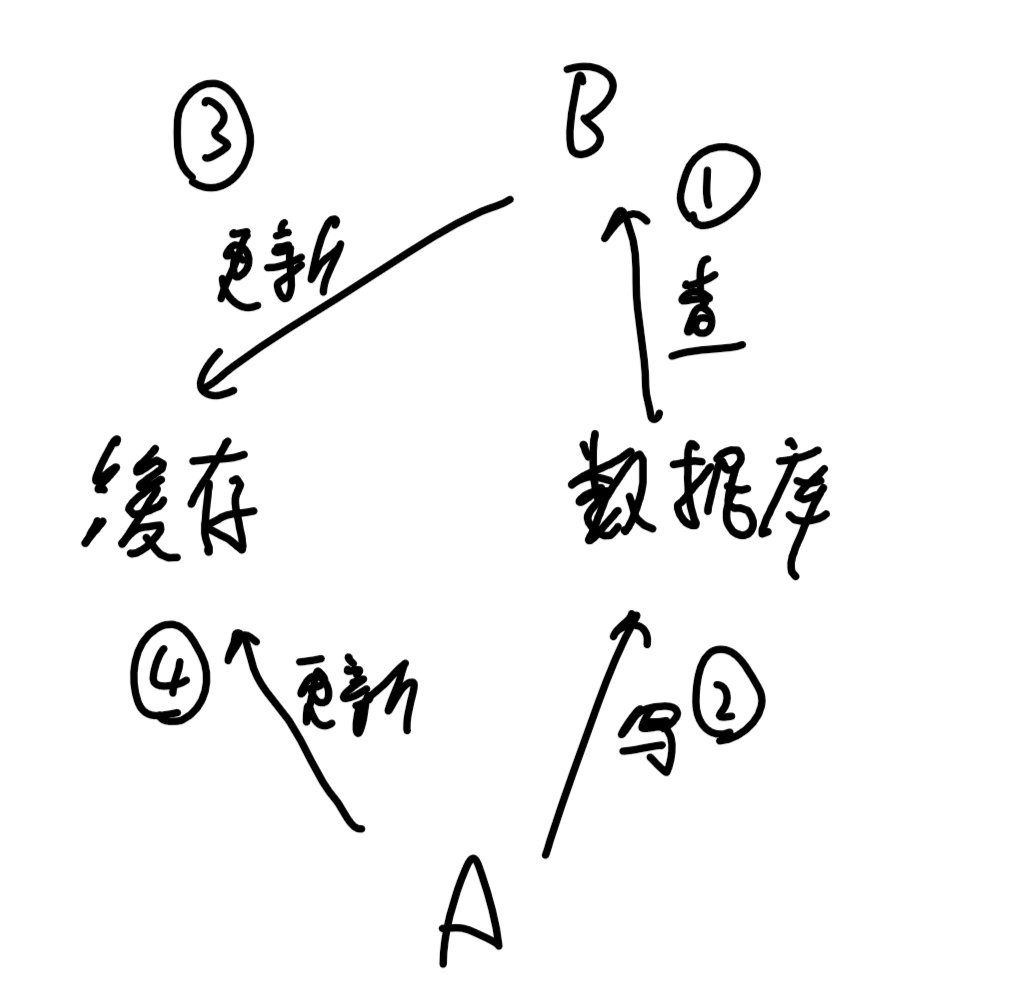 B
③
①
更新
查
缓存
数据库
④
更新
写
②
A